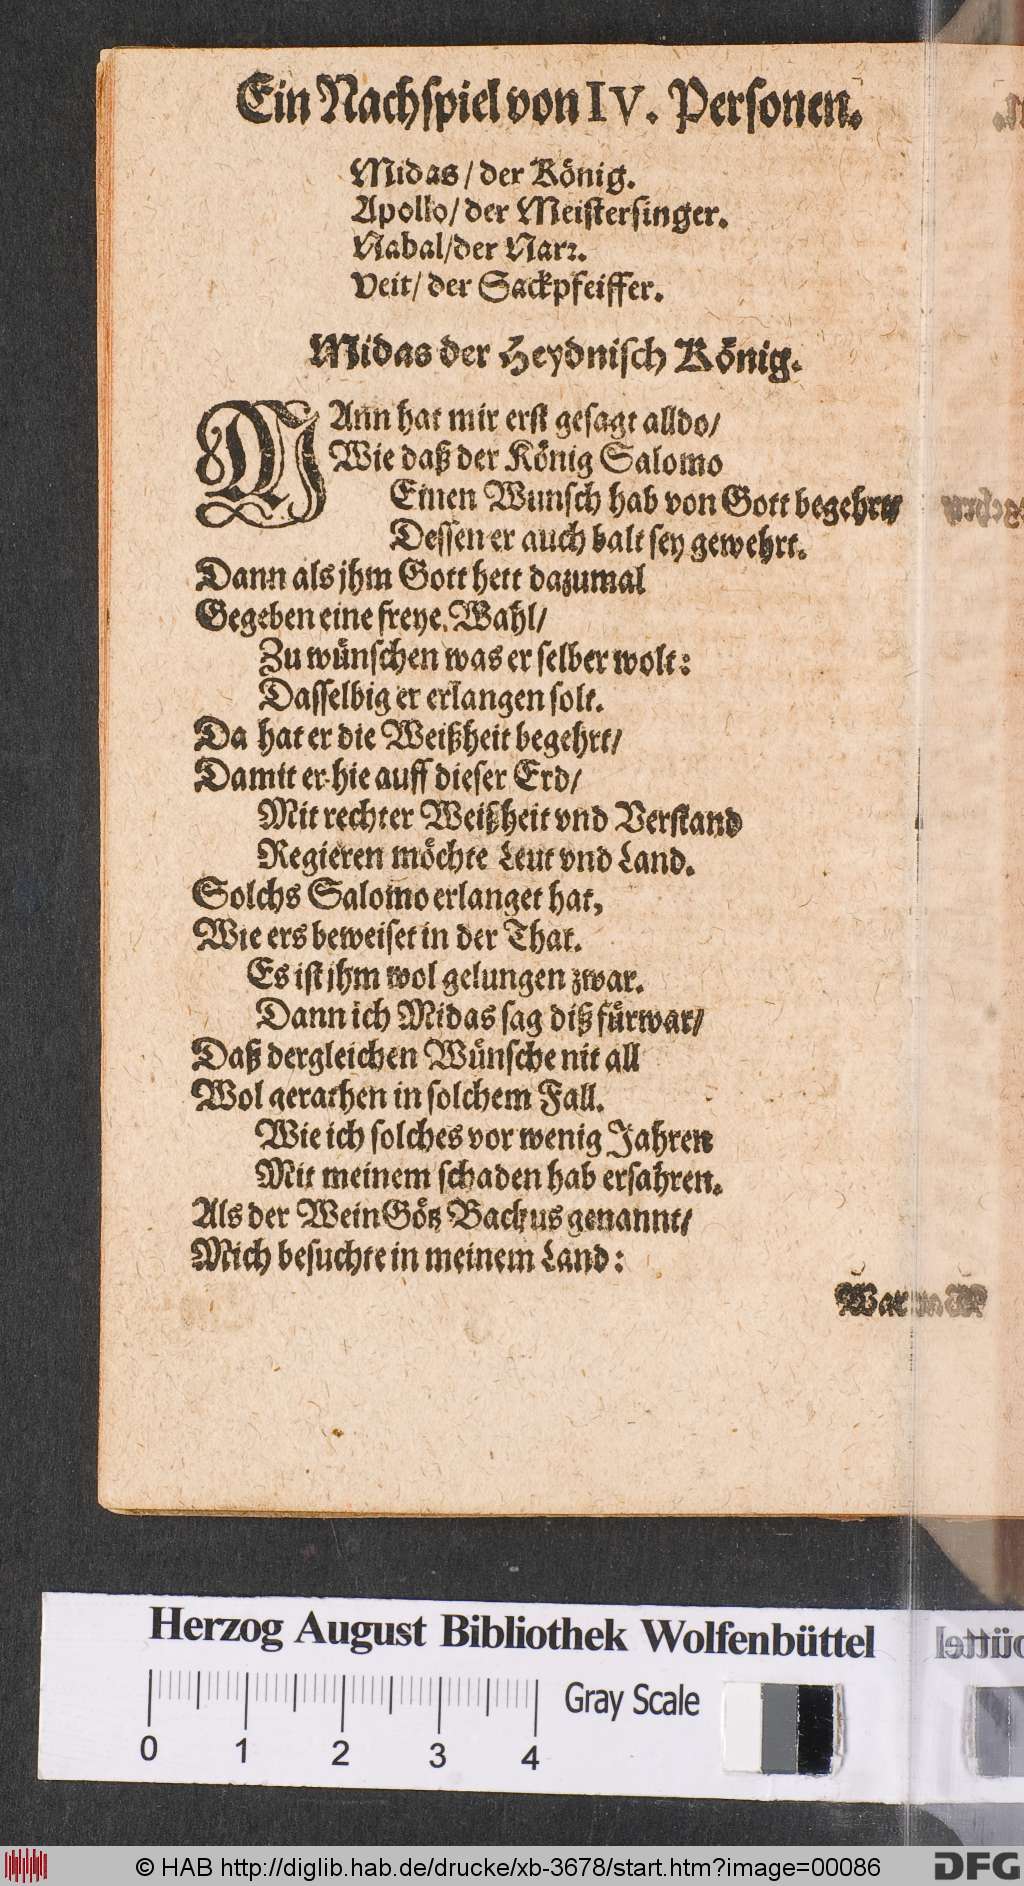 Ein Nachspiel von IV. Personen.
Midas / der König.
Apollo / der Meistersinger.
Nabal / der Narr.
Veit / der Sackpfeiffer.
Midas der Heydnisch König.
MAnn hat mir erst gesagt alldo /
Wie daß der König Salomo
Einen Wunsch hab von Gott begehrt
Dessen er auch balt sey gewehrt.
Dann als jhm Gott hett dazumal
Gegeben eine freye Wahl /
Zu wünschen was er selber wolt :
Dasselbig er erlangen solt.
Da hat er die Weißheit begehrt /
Damit er hie auff dieser Erd /
Mit rechter Weißheit vnd Verstand
Regieren möchte Leut vnd Land.
Solchs Salomo erlanget hat,
Wie ers beweiset in der That.
Es ist jhm wol gelungen zwar.
Dann ich Midas sag diß fürwar /
Daß dergleichen Wünsche nit all
Wol gerathen in solchem Fall.
Wie ich solches vor wenig Jahren
Mit meinem schaden hab erfahren.
Als der WeinGötz Backus genannt /
Mich besuchte in meinem Land :
Herzog August Bibliothek Wolfenbüttel
Gray Scale
0 1 2 3 4
© HAB http://diglib.hab.de/drucke/xb-3678/start.htm?image=00086
DFG